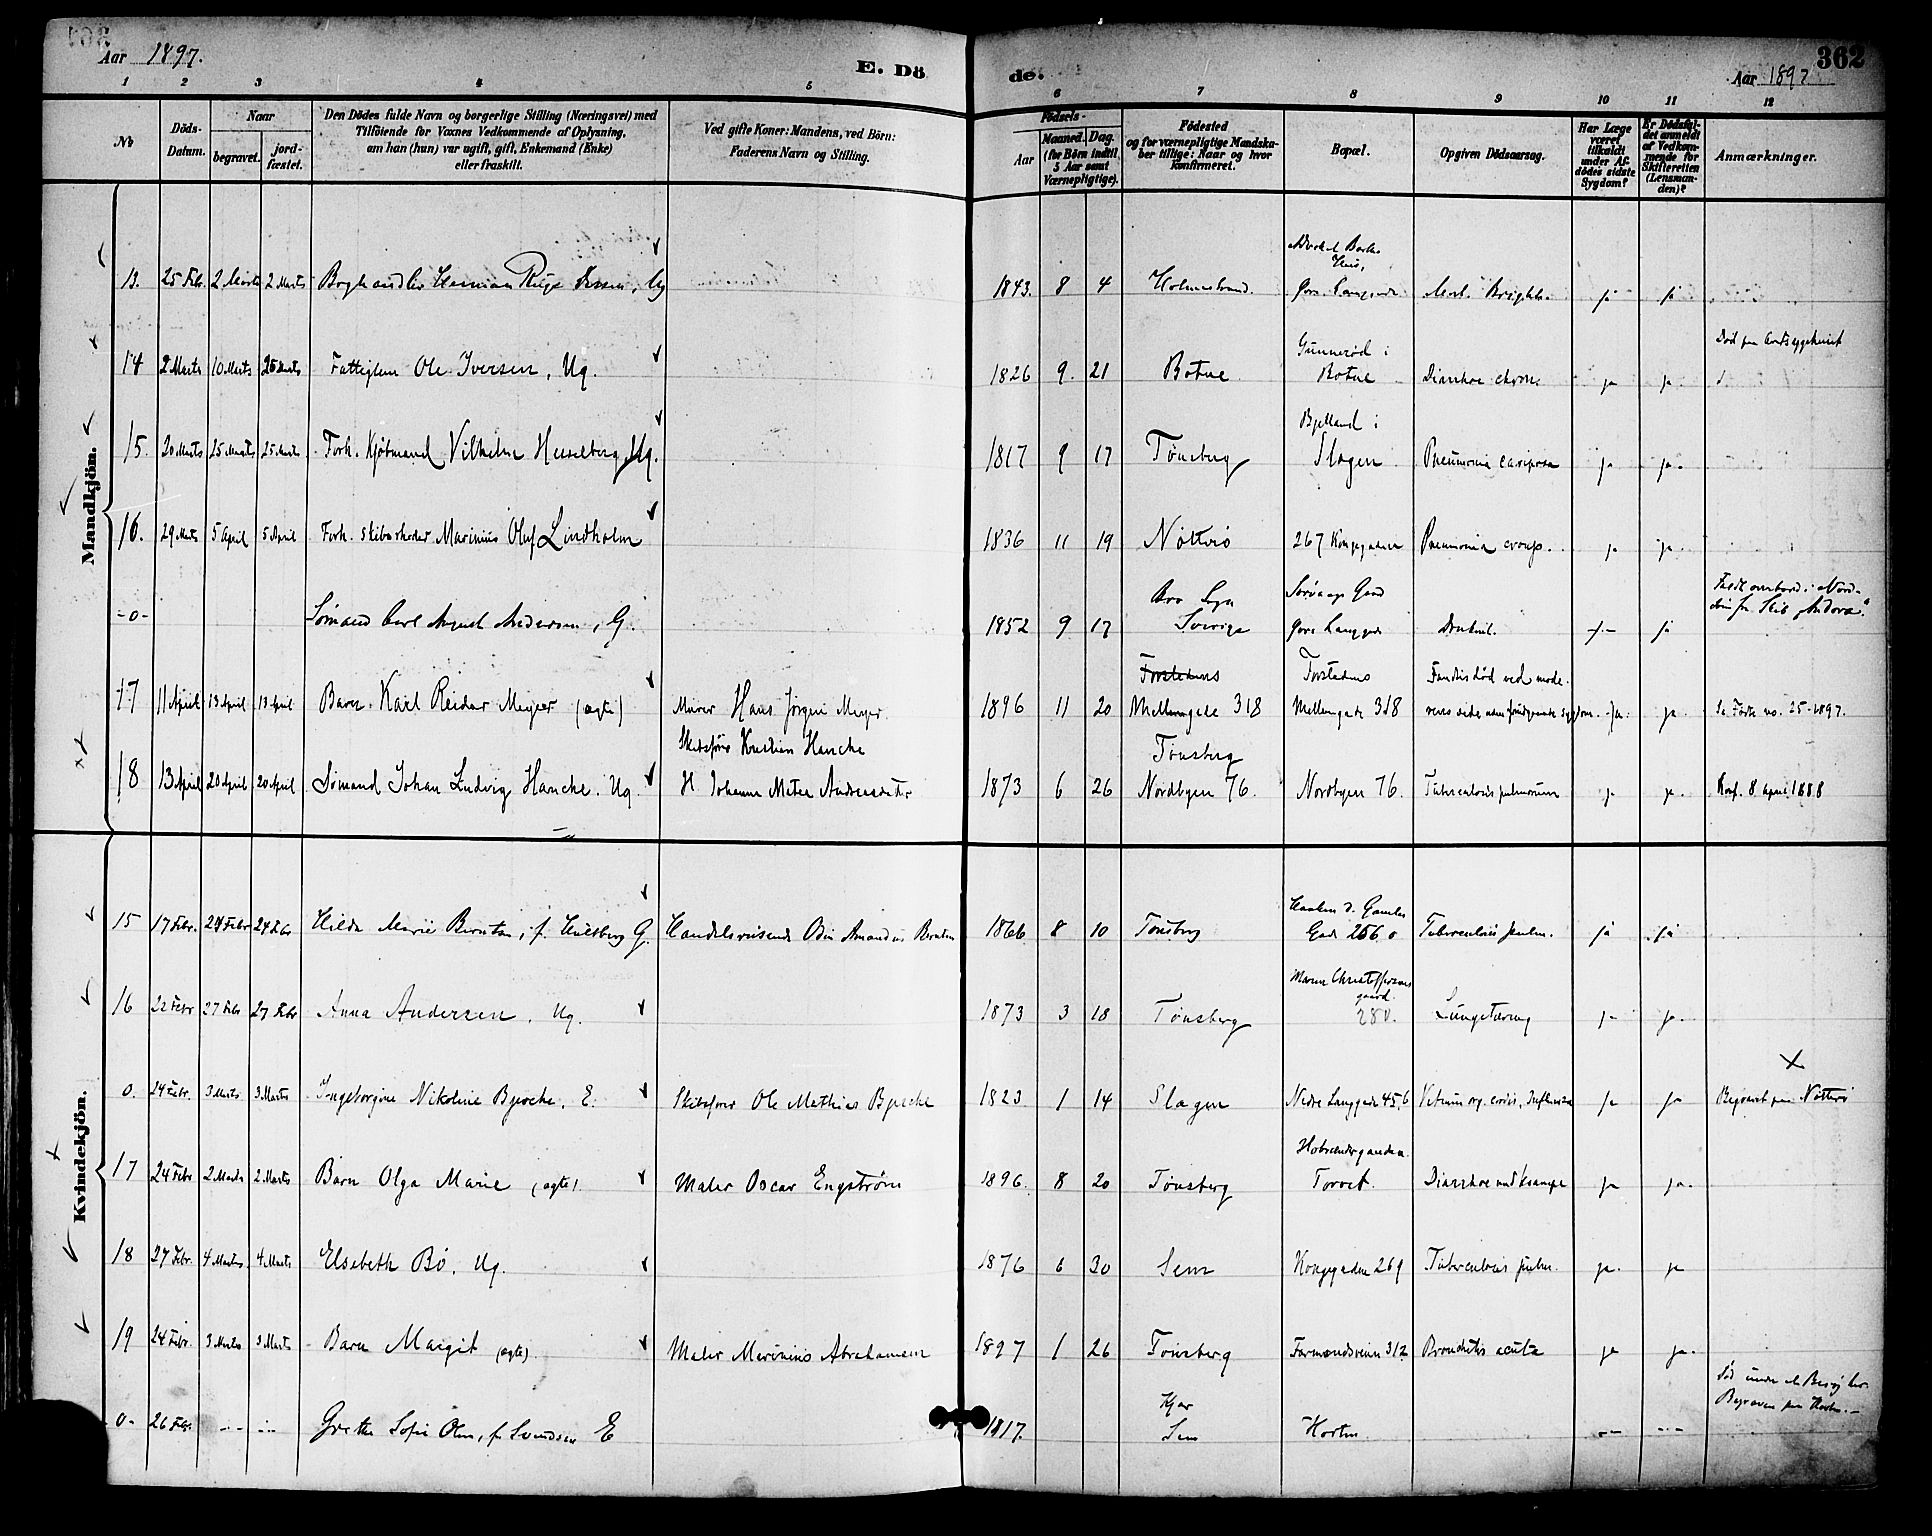 362
Aar 1897.
E. Dö
de.
Aar 1897
1 2 3 4 5 6 7 8 9 10 11 12
No
Döds-Datum.
Naar
begravet.
jord-fæstet.
Den Dödes fulde Navn og borgerlige Stilling (Næringsvei) med
Tilföiende for Voxnes Vedkommende af Oplysning,
om han (hun) var ugift, gift, Enkemand (Enke)
eller fraskilt.
Ved gifte Koner: Mandens, ved Börn:
Faderens Navn og Stilling.
Födsels-
Aar
Maaned. Dag.
(for Börn indtil
5 Aar samt
Værnepligtige).
Födested
og for værnepligtige Mandska-
ber tillige: Naar og hvor
konfirmeret.
Bopæl.
Opgiven Dödsaarsag.
Har Læge
været
tilkaldt
under Af-
dödes sidste
Sygdom?
Er Dödsfal-
det anmeldt
af Vedkom-
mende for
Skifteretten
(Lensman-
den)?
Anmærkninger.
Mandkjön.
13. 25 Febr. 2 Marts 2 Marts Boghandler Herman Ruge Ug 1843. 8 4 Holmestrand. Hus, Morb. Brightii. ja ja
14 2 Marts 10 Marts 25 Marts Fattiglem Ole Iversen, Ug. 1826 9. 21 Botne Gunnerød i Botne Diarrhoe chron. ja ja Død paa
15. 20 Marts 25 Marts 25 Marts Forh. Kjøbmand Vilhelm Ug. 1817 9 17 Tønsberg Bjelland i Slagen Pneumonia ja ja.
16. 29 Marts 5 April 5 April Forh. Skibsrheder Marinius Oluf Lindholm 1836 11 19 Nøtterø 267 Kongegaden Pneumonia croup. ja ja.
-0- Sømand Carl August Andersen, G. 1852 9 17 Sverige Gaard Druknet. -/- ja Faldt overbord i Nord- fra Skib "Andora"
17 11 April 13 April 13 April Barn. Karl Reidar Meyer (ægte) Murer Hans Jørgen Meyer. 1896 11 20 Møllegade 318 Møllegade 318 Fandtes død ved moderens side ja Se Fødte no. 25-1897.
18 13 April 20 April 20 April Sømand Johan Ludvig Hanche. Ug. Skibsfører Kristian Hanche H. Johanne Matea Andreasdatter 1873 6 26 Tønsberg Nordbyen 76. Nordbyen 76. Tuberculosis pulmonum ja ja. Konf. 8 April 1888
Kvindekjön.
15 17 Febr. 24 Febr 24 Febr Hilda Marie Berntsen, f. G. Handelsreisende Odin Amandus Berntsen 1866 8 10 Tønsberg Gade 256 Tuberculosis pulm. ja ja
16 22 Febr 27 Febr 27 Febr Anna Andersen. Ug. 1873 3 18 Tønsberg Maren Christoffersens gaard 280. Lungetæring ja ja.
0. 24 Febr. 3 Marts 3 Marts Ingeborgine Nikoline Bjerche. E. Skibsfører Ole Mathias Bjerche 1823 1 14 Slagen Nedre Langgade Vitium org. cordis, Influenza ja ja Begravet paa Nøtterø
17 24 Febr 2 Marts 2 Marts Barn Olga Marie (ægte). Maler Oscar Engstrøm 1896. 8 20 Tønsberg Torvet. Diarrhoe med Krampe ja ja.
18 27 Febr. 4 Marts 4 Marts Elsebeth Bö. Ug. 1876 6 30 Sem Kongegaden 269 Tuberculosis pulm. ja. ja
19 24 Febr. 3 Marts 3 Marts Barn Margit (ægte) Maler Marinius Abrahamsen 1897 1 26 Tønsberg Farmandsveien 312 Bronchitis acuta ja ja.
0- 26 Febr. Grethe Sofie Olsen, f. Svendsen E 1817. Kjær Sem Horten Død under et Besøg her. Begraven paa Horten.-